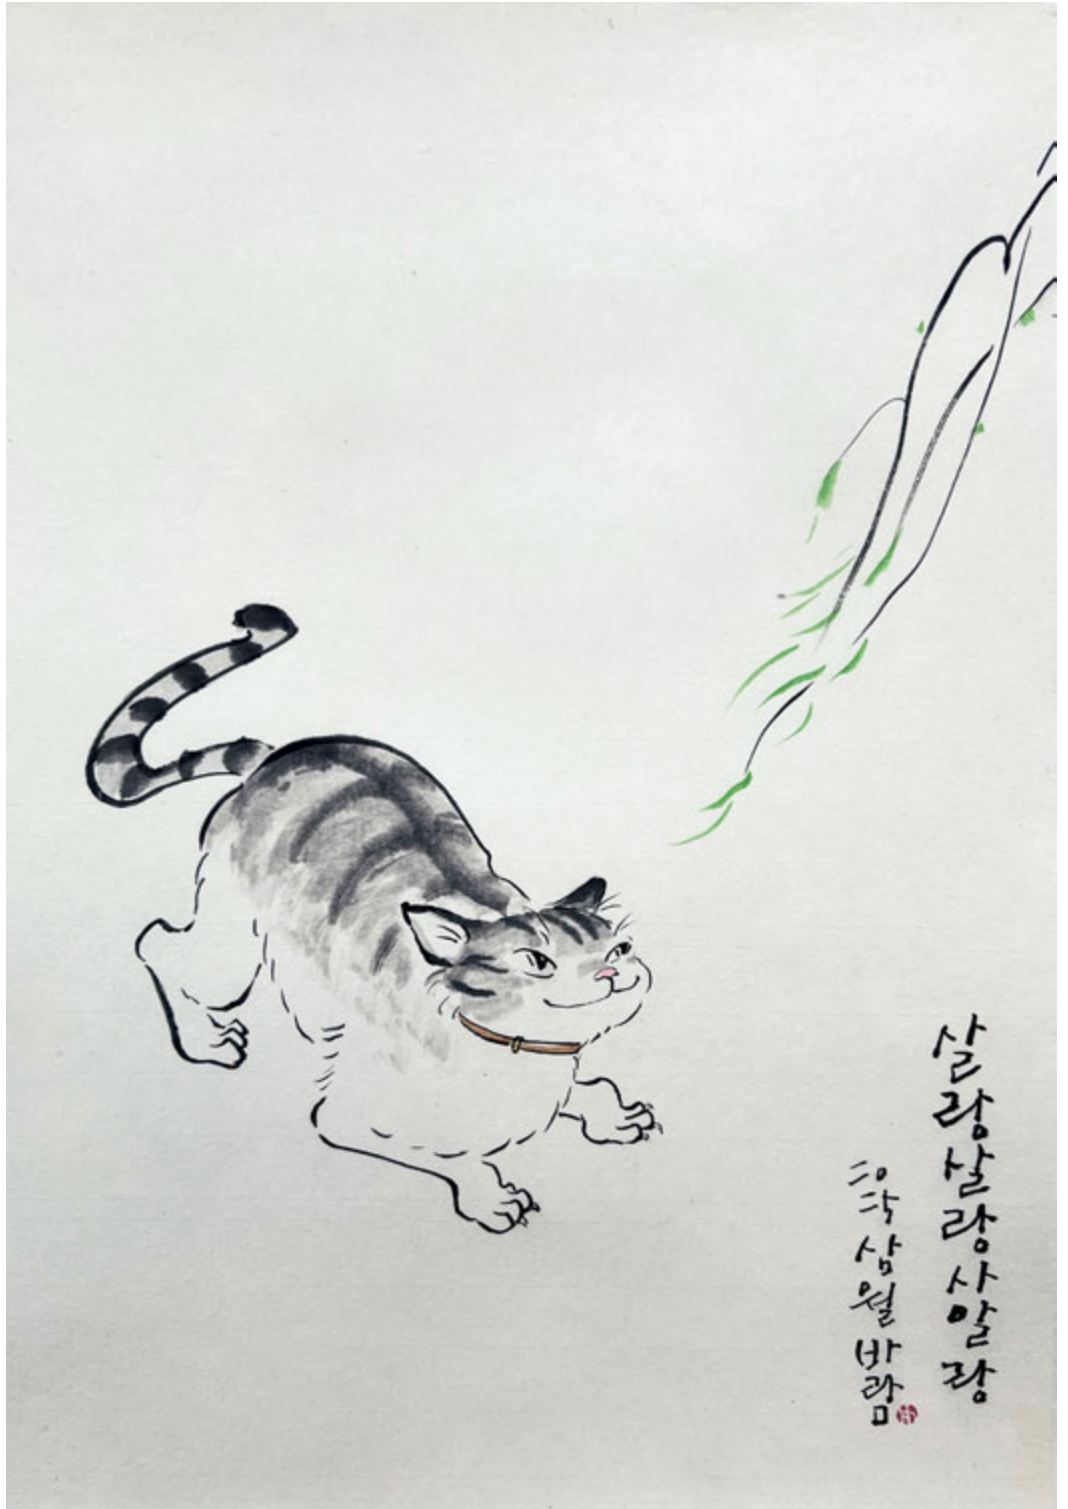 살랑살랑사알랑
삼월 바람